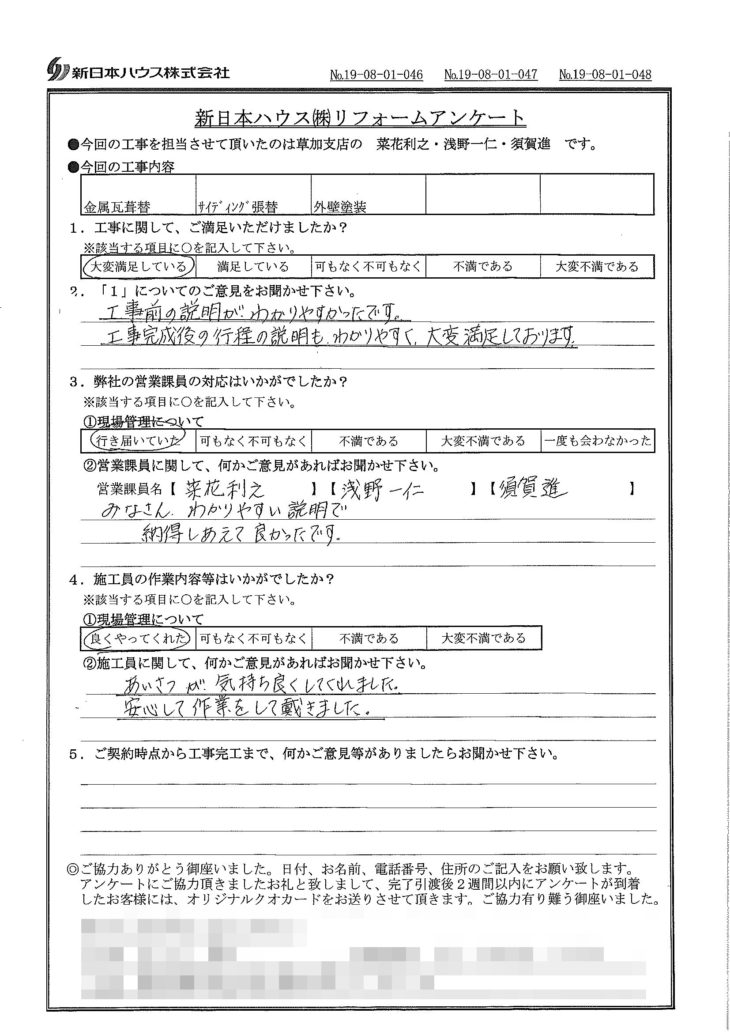 新日本ハウス株式会社
№19-08-01-046 №19-08-01-047 №19-08-01-048
新日本ハウス㈱リフォームアンケート
●今回の工事を担当させて頂いたのは草加支店の 菜花利之・浅野一仁・須賀進 です。
●今回の工事内容
金属瓦葺替 ｻｲﾃﾞｨﾝｸﾞ張替 外壁塗装
1．工事に関して、ご満足いただけましたか？
※該当する項目に○を記入して下さい。
大変満足している 満足している 可もなく不可もなく 不満である 大変不満である
2．「1」についてのご意見をお聞かせ下さい。
工事前の説明が、わかりやすかったです。
工事完成後の行程の説明も、わかりやすく、大変満足しております。
3．弊社の営業課員の対応はいかがでしたか？
※該当する項目に○を記入して下さい。
①現場管理について
行き届いていた 可もなく不可もなく 不満である 大変不満である 一度も会わなかった
②営業課員に関して、何かご意見があればお聞かせ下さい。
営業課員名【 菜花利之 】【 浅野一仁 】【 須賀進 】
みなさん、わかりやすい説明で
納得しあえて良かったです。
4．施工員の作業内容等はいかがでしたか？
※該当する項目に○を記入して下さい。
①現場管理について
良くやってくれた 可もなく不可もなく 不満である 大変不満である
②施工員に関して、何かご意見があればお聞かせ下さい。
あいさつが、気持ち良くしてくれました。
安心して作業をして戴きました。
5．ご契約時点から工事完工まで、何かご意見等がありましたらお聞かせ下さい。
◎ご協力ありがとう御座いました。日付、お名前、電話番号、住所のご記入をお願い致します。
アンケートにご協力頂きましたお礼と致しまして、完了引渡後２週間以内にアンケートが到着
したお客様には、オリジナルクオカードをお送りさせて頂きます。ご協力有り難う御座いました。